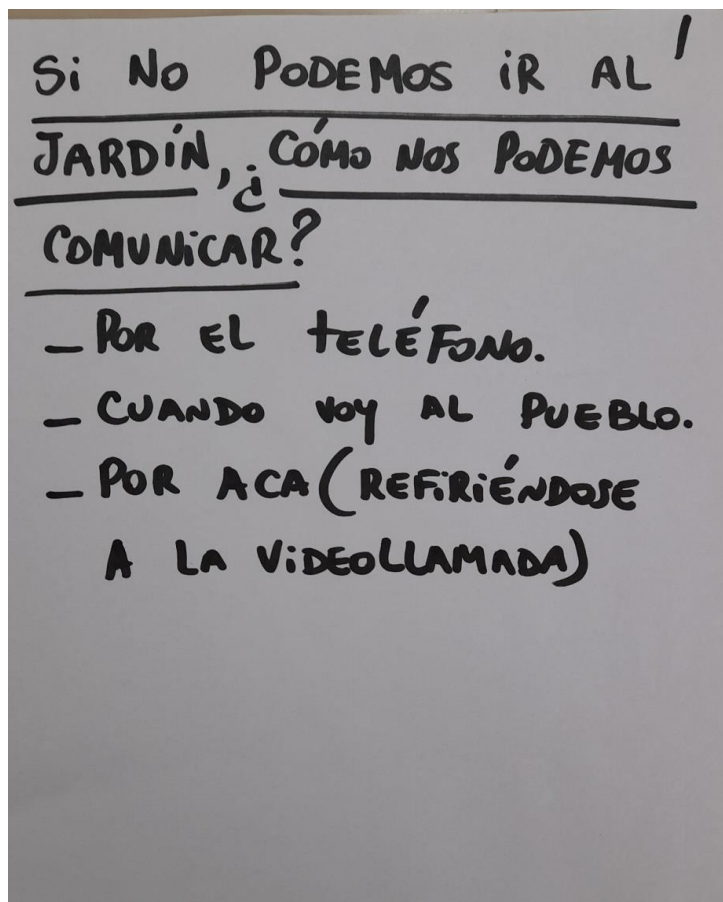 Si NO PODEMOS iR AL
JARDÍN, ¿CÓMO NOS PODEMOS
COMUNiCAR?
– POR EL tELÉFONO.
– CUANDO VOY AL PUEBLO.
– POR ACA (REFiRiÉNDOSE
A LA ViDEOLLAMADA)